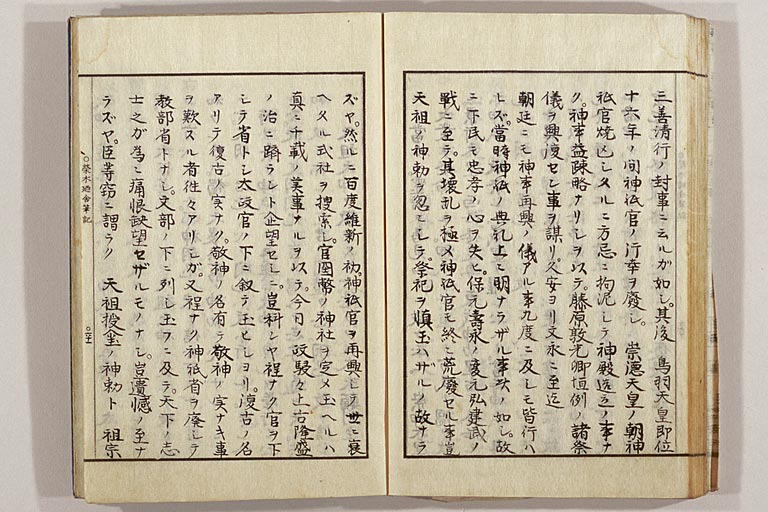 三善清行ノ封事ニ云ルガ如シ。其後　鳥羽天皇即位
十六年ノ間神祇官ノ行幸ヲ廢シ。　崇德天皇ノ朝神
祇官燒亡シタルニ方忌ニ拘泥シテ神殿造立ノ事ナ
ク。神事益疎略ナリシヲ以テ。藤原敦光卿恒例ノ諸祭
儀ヲ興復セン事ヲ謀リ。久安ヨリ文永ニ至迄
朝廷ニモ神事再興ノ儀アル事九度ニ及シモ皆行ハ
レズ。當時神祇ノ典礼上ニ明ナラザル事次ノ如シ。故
ニ下民モ忠孝ノ心ヲ失ヒ。保元壽永ノ変元弘建武ノ
戰ニ至テ。其壞乱ヲ極メ神祇官モ終ニ荒廢セル事豈
天祖ノ神勅ヲ忽ニシテ。祭祀ヲ慎玉ハザルノ故ナラ
ズヤ。然ルニ百度維新ノ初。神祇官ヲ再興シテ世ニ衰
ヘタル式社ヲ搜索シ。官國幣ノ神社ヲ定メ玉ヘルハ
真ニ千載ノ美事ナルヲ以テ。今日ノ政駸々上古隆盛
ノ治ニ躋ラント企望セシニ。豈料ンヤ程ナク官ヲ下
シテ省トシ太政官ノ下ニ叙テ玉ヒシヨリ。復古ノ名
アリテ復古ノ実ナク。敬神ノ名有テ敬神ノ実ナキ事
ヲ歎スル者徃々アリシガ。又程ナク神祇省ヲ廢シテ
教部省トナシ。文部ノ下ニ列シ玉フニ及テ。天下ノ志
士之ガ為ニ痛恨缺望セザルモノナシ。豈遺憾ノ至ナ
ラズヤ。臣等竊ニ謂ラク　天祖授金ノ神勅ト　祖宗